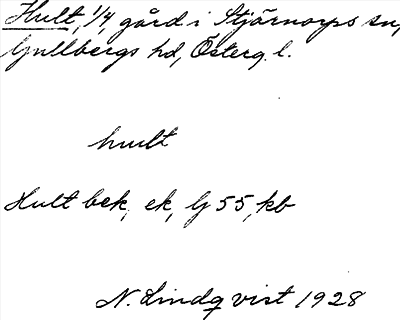 Hult, 1/4, gård i Stjärnorps sn,
Gullbergs hd, Österg. l.
hult
Hult bek, ek, Gj 55, kb
N. Lindqvist 1928